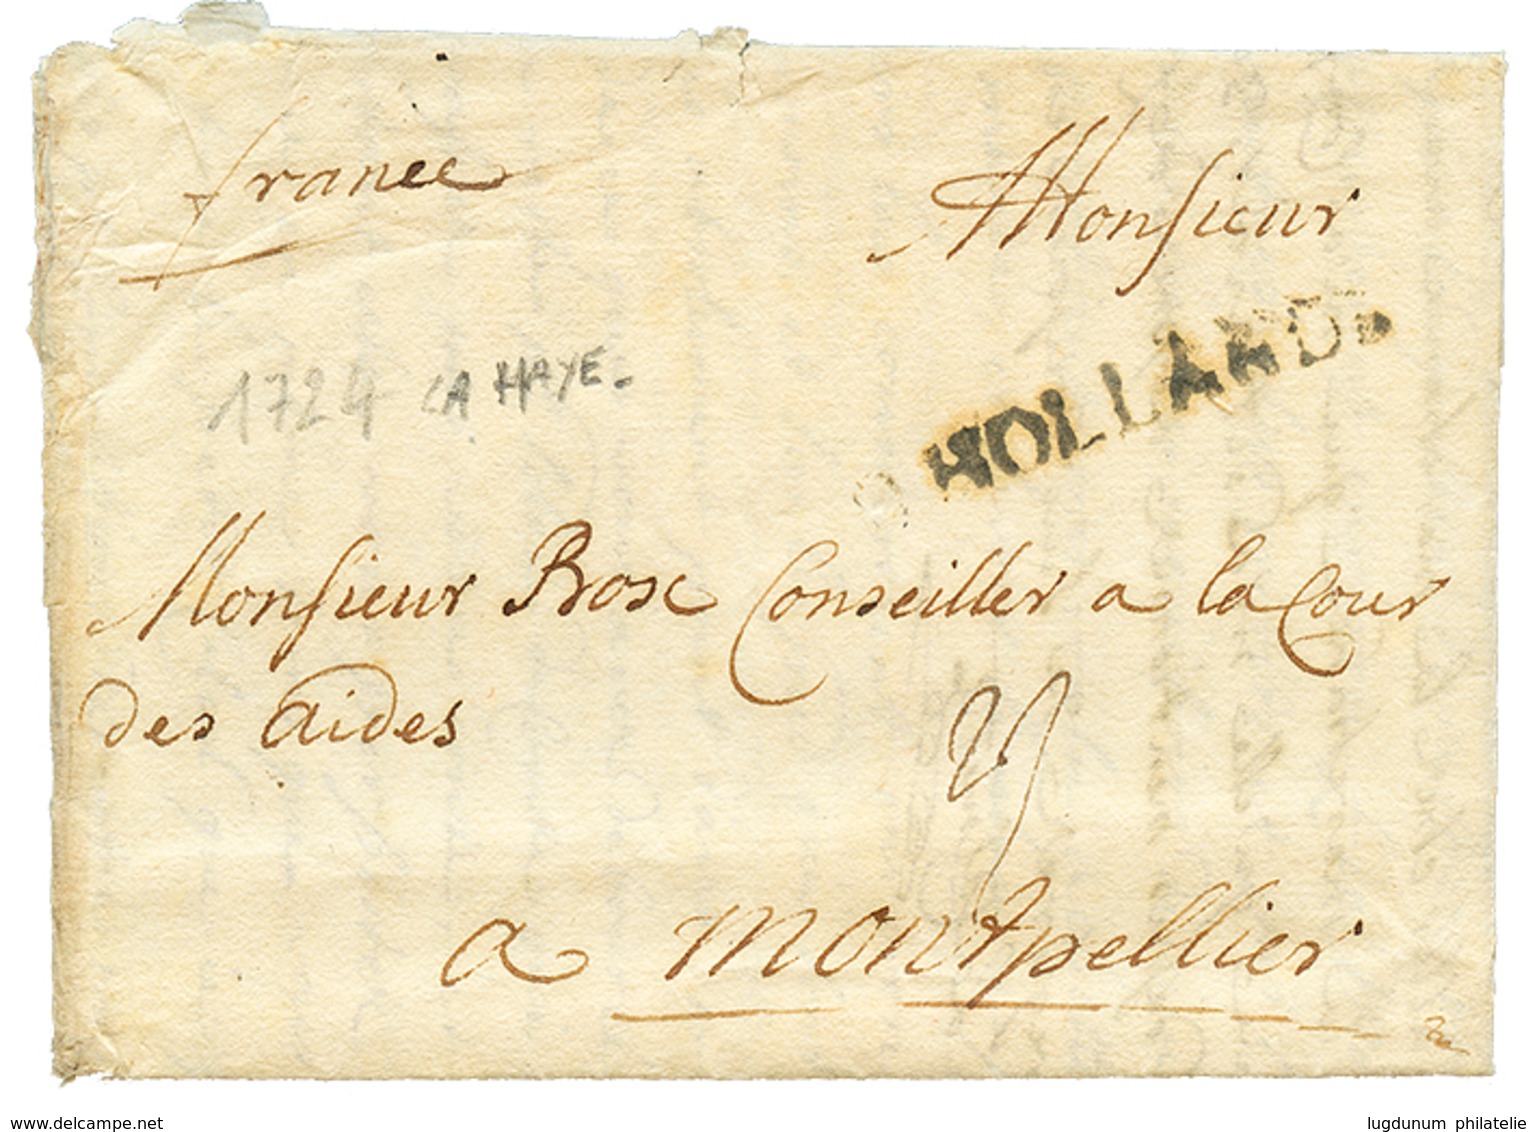 france
Monsieur
D'HOLLANDE
1724 LA HAYE -
Monsieur Bosc Conseiller a la Cour
des aides
23
a Montpellier
www.delcampe.net
lugdunum philatelie